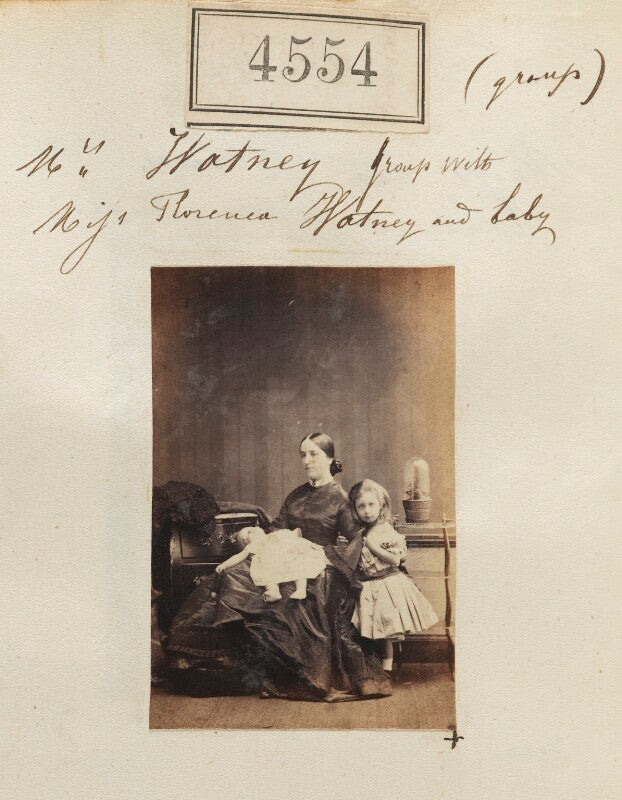 4554
(group)
Mrs Watney group with
Miss Florence Watney and baby